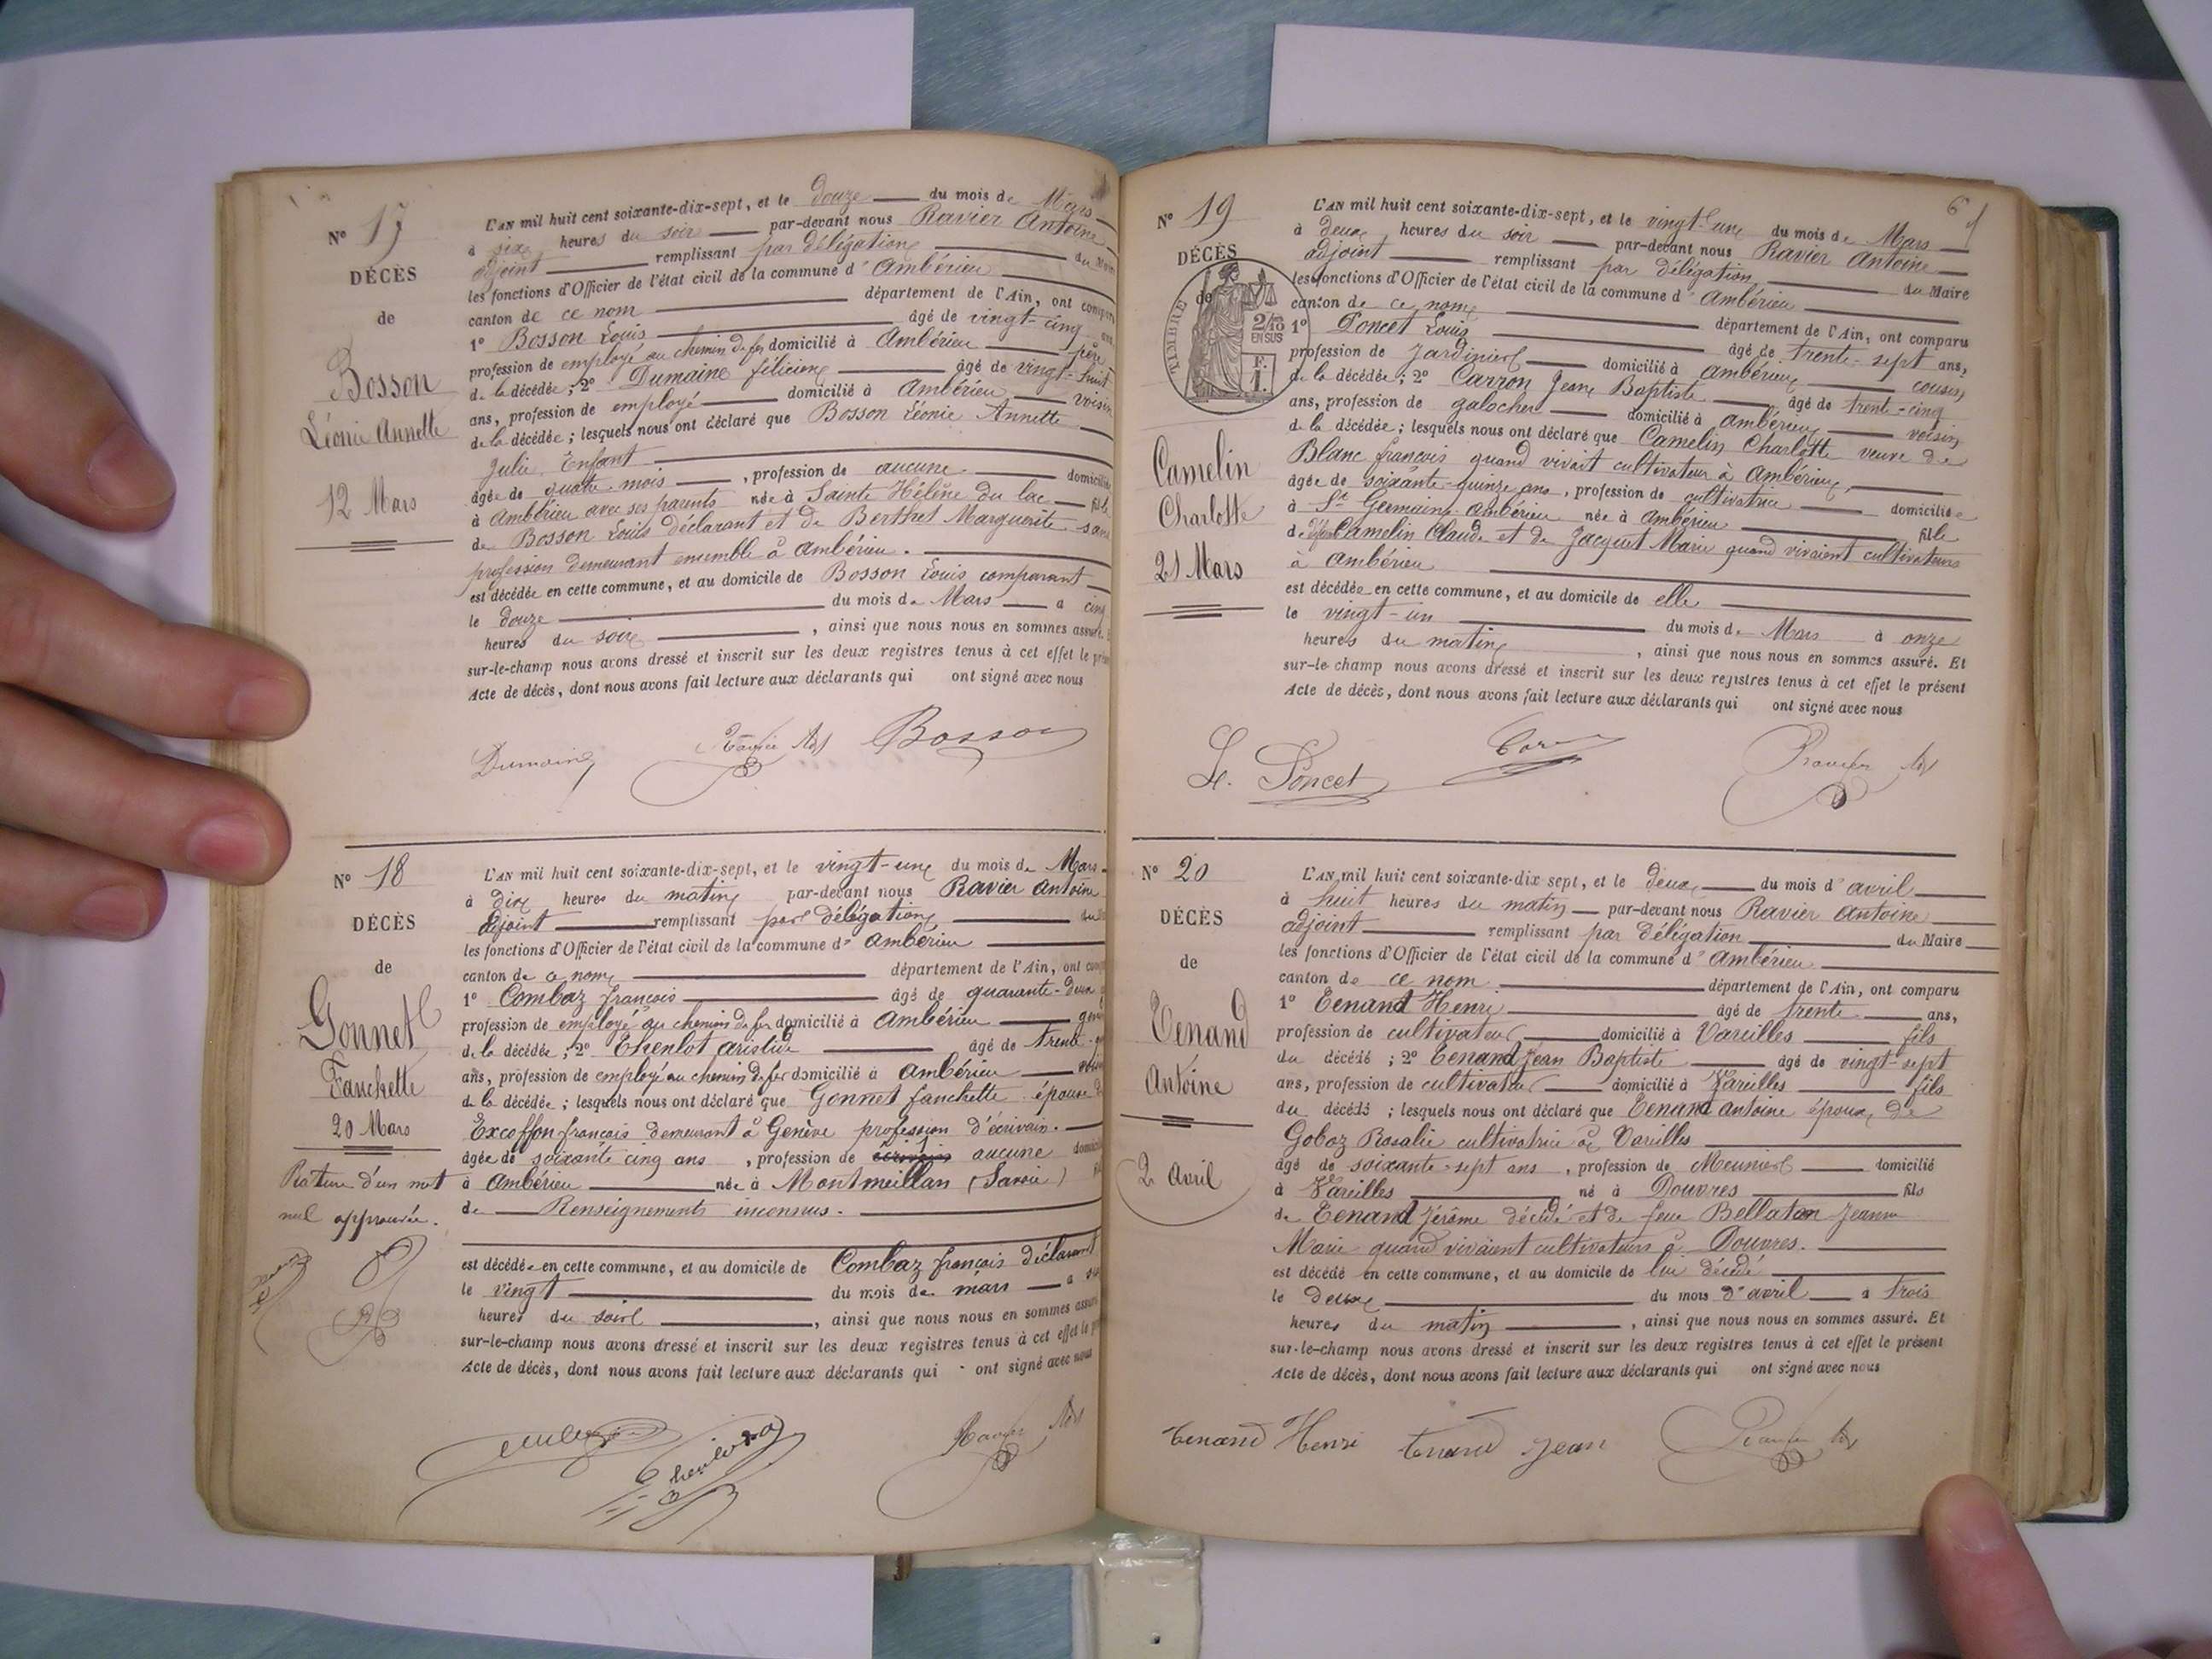 N° 17
DÉCÈS
de
Bosson
Léonie Annette
12 Mars
L'AN mil huit cent soixante-dix-sept, et le douze du mois de Mars
à six heures du soir par-devant nous Ravier Antoine
adjoint remplissant par délégation du Maire
les fonctions d'Officier de l'état civil de la commune d'Ambérieu
canton de ce nom département de l'Ain, ont comparu
1° Bosson Louis âgé de vingt-cinq ans
profession de employé au chemin de fer domicilié à Ambérieu père
de la décédée; 2° Dumaine félicien âgé de vingt-huit
ans, profession de employé domicilié à Ambérieu voisin
de la décédée; lesquels nous ont déclaré que Bosson Léonie Annette
Julie Enfant
âgée de quatre mois, profession de aucune domiciliée
à Ambérieu avec ses parents née à Sainte Hélène du lac fille
de Bosson Louis déclarant et de Berthet Marguerite sans
profession demeurant ensemble à Ambérieu.
est décédée en cette commune, et au domicile de Bosson Louis comparant
le douze du mois de Mars à cinq
heures du soir, ainsi que nous nous en sommes assuré. Et
sur-le-champ nous avons dressé et inscrit sur les deux registres tenus à cet effet le présent
Acte de décès, dont nous avons fait lecture aux déclarants qui ont signé avec nous
Dumaine Ravier Adj Bosson
N° 18
DÉCÈS
de
Gonnet
Fanchette
20 Mars
Rature d'un mot
nul approuvée.
L'AN mil huit cent soixante-dix-sept, et le vingt-une du mois de Mars
à dix heures du matin par-devant nous Ravier Antoine
adjoint remplissant par délégation du
les fonctions d'Officier de l'état civil de la commune d'Ambérieu
canton de ce nom département de l'Ain, ont comp
1° Combaz françois âgé de quarante-deux
profession de employé au chemin de fer domicilié à Ambérieu
de la décédée; 2° aristide âgé de trente
ans, profession de employé au chemin de fer domicilié à Ambérieu
de la décédée; lesquels nous ont déclaré que Gonnet fanchette épouse de
Excoffon françois demeurant à Genève profession d'écrivain.
âgée de soixante cinq ans, profession de écrivain aucune
à Ambérieu née à Montmeillan (Savoie)
de Renseignements inconnus.
est décédée en cette commune, et au domicile de Combaz françois déclarant
le vingt du mois de mars à
heures du soir, ainsi que nous nous en sommes assuré
sur-le-champ nous avons dressé et inscrit sur les deux registres tenus à cet effet le
Acte de décès, dont nous avons fait lecture aux déclarants qui ont signé avec nous
Ravier Adj
6
N° 19
DÉCÈS
de
TIMBRE
2/10
EN SUS
F.
1.
Camelin
Charlotte
21 Mars
L'AN mil huit cent soixante-dix-sept, et le vingt-une du mois de Mars
à deux heures du soir par-devant nous Ravier Antoine
adjoint remplissant par délégation du Maire
les fonctions d'Officier de l'état civil de la commune d'Ambérieu
canton de ce nom département de l'Ain, ont comparu
1° Poncet Louis âgé de trente-sept ans,
profession de jardinier domicilié à Ambérieu cousin
de la décédée; 2° Carron Jean Baptiste âgé de trente-cinq
ans, profession de galocher domicilié à Ambérieu voisin
de la décédée; lesquels nous ont déclaré que Camelin Charlotte veuve de
Blanc françois quand vivait cultivateur à Ambérieu,
âgée de soixante-quinze ans, profession de cultivatrice domiciliée
à St Germain-Ambérieu née à Ambérieu fille
de Camelin Claude et de Jacquet Marie quand vivaient cultivateurs
à Ambérieu
est décédée en cette commune, et au domicile de elle
le vingt-un du mois de Mars à onze
heures du matin, ainsi que nous nous en sommes assuré. Et
sur-le-champ nous avons dressé et inscrit sur les deux registres tenus à cet effet le présent
Acte de décès, dont nous avons fait lecture aux déclarants qui ont signé avec nous
L. Poncet Ravier Adj
N° 20
DÉCÈS
de
Tenand
Antoine
2 Avril
L'AN mil huit cent soixante-dix sept, et le deux du mois d'avril
à huit heures du matin par-devant nous Ravier Antoine
adjoint remplissant par délégation du Maire
les fonctions d'Officier de l'état civil de la commune d'Ambérieu
canton de ce nom département de l'Ain, ont comparu
1° Tenand Henri âgé de trente ans,
profession de cultivateur domicilié à Vareilles fils
du décédé; 2° Tenand Jean Baptiste âgé de vingt-sept
ans, profession de cultivateur domicilié à Vareilles fils
du décédé; lesquels nous ont déclaré que Tenand Antoine époux de
Goboz Rosalie cultivatrice à Vareilles
âgé de soixante-sept ans, profession de Meunier domicilié
à Vareilles né à Douvres fils
de Tenand Jérôme décédé et de feue Bellaton Jeanne
Marie quand vivaient cultivateurs à Douvres.
est décédé en cette commune, et au domicile de lui décédé
le deux du mois d'avril à trois
heures du matin, ainsi que nous nous en sommes assuré. Et
sur-le-champ nous avons dressé et inscrit sur les deux registres tenus à cet effet le présent
Acte de décès, dont nous avons fait lecture aux déclarants qui ont signé avec nous
Tenand Henri Tenand Jean Ravier Adj